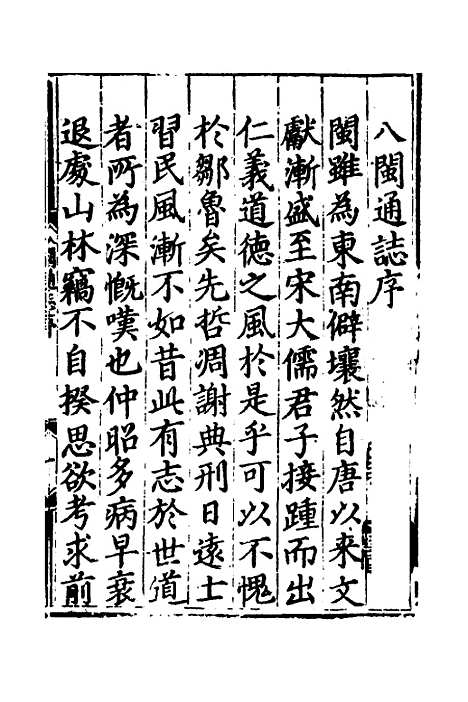 八閩通誌序
閩雖為東南僻壤然自唐以来文
獻漸盛至宋大儒君子接踵而出
仁義道德之風於是乎可以不愧
於鄒魯矣先哲凋謝典刑日逺士
習民風漸不如昔此有志於世道
者所為深慨嘆也仲昭多病早衰
退處山林竊不自揆思欲考求前